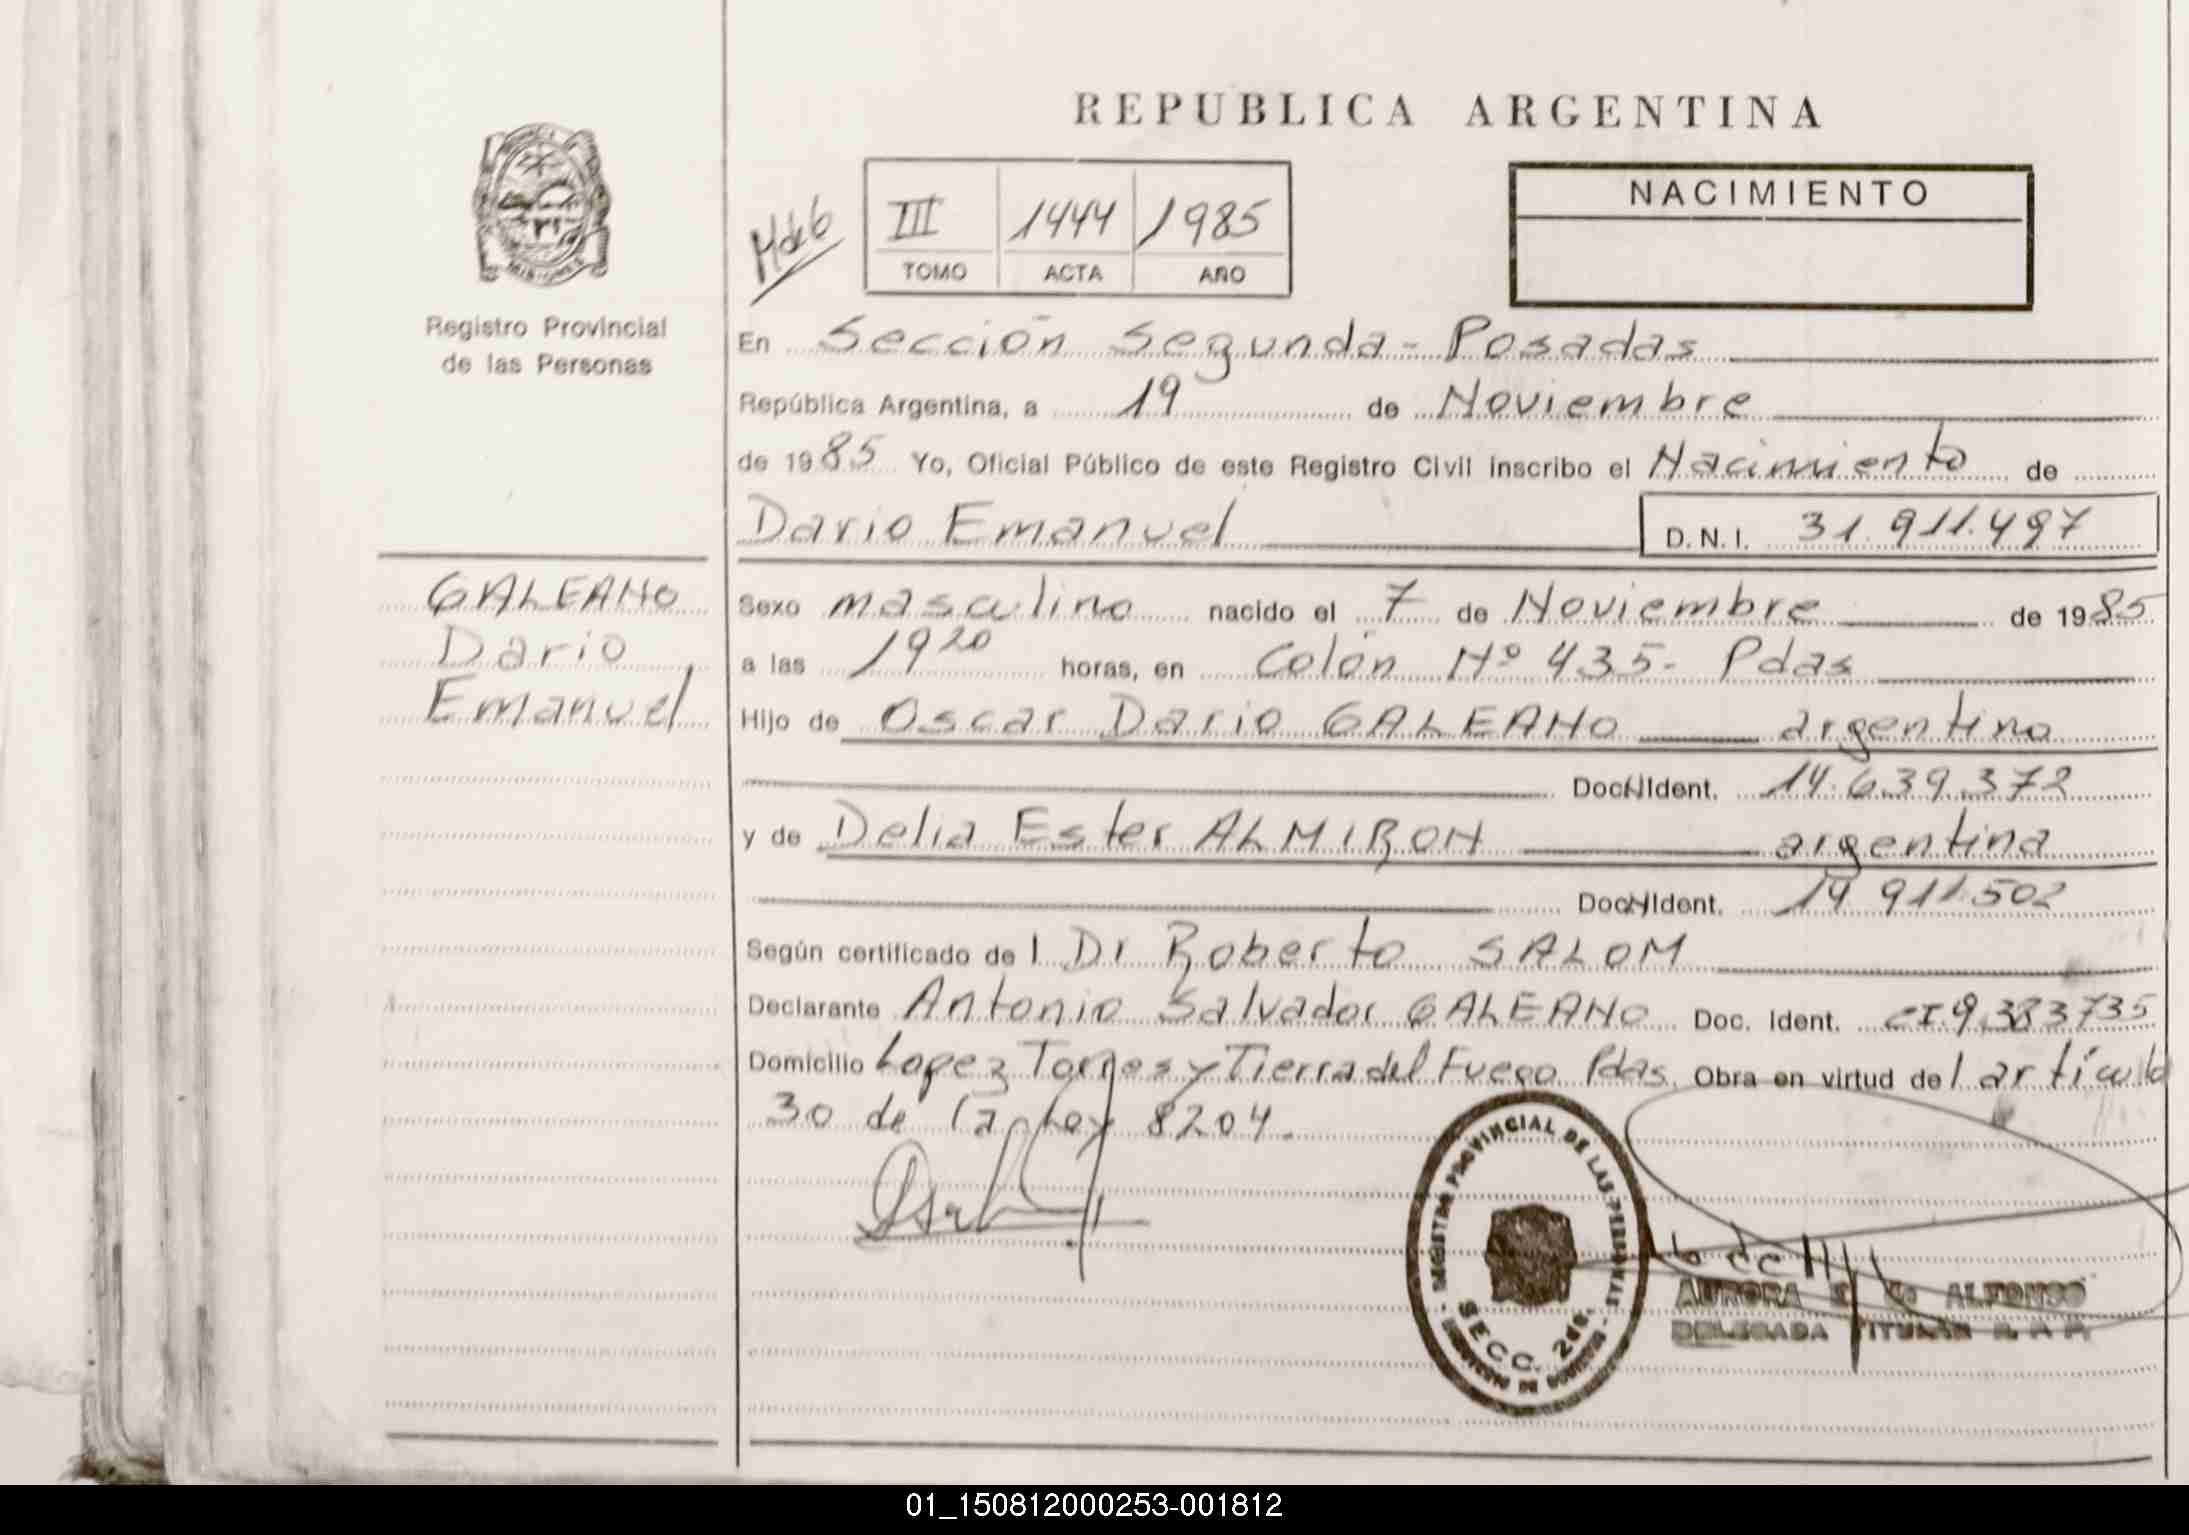 REPUBLICA ARGENTINA
NACIMIENTO
III 1444 1985
TOMO ACTA AÑO
MISIONES
Registro Provincial
de las Personas
En Sección Segunda - Posadas
República Argentina, a 19 de Noviembre
de 1985 Yo, Oficial Público de este Registro Civil inscribo el Nacimiento de
Dario Emanuel D.N.I. 31.911.497
GALEANO
Dario
Emanuel
Sexo masculino nacido el 7 de Noviembre de 1985
a las 19 20 horas, en Colón Nº 435- Pdas
Hijo de Oscar Dario GALEANO argentino
Doc. Ident. 14.639.372
y de Delia Ester ALMIRON argentina
Doc. Ident. 14.911.502
Según certificado de l Dr Roberto SALOM
Declarante Antonio Salvador GALEANO Doc. Ident. CI.9.383735
Domicilio Lopez Torres y Tierra del Fuego Pdas. Obra en virtud del artículo
30 de la Ley 8204.
REGISTRO PROVINCIAL DE LAS PERSONAS
SECC. 2da.
AURORA ALFONSO
DELEGADA TITULAR R. P. P.
01_150812000253-001812